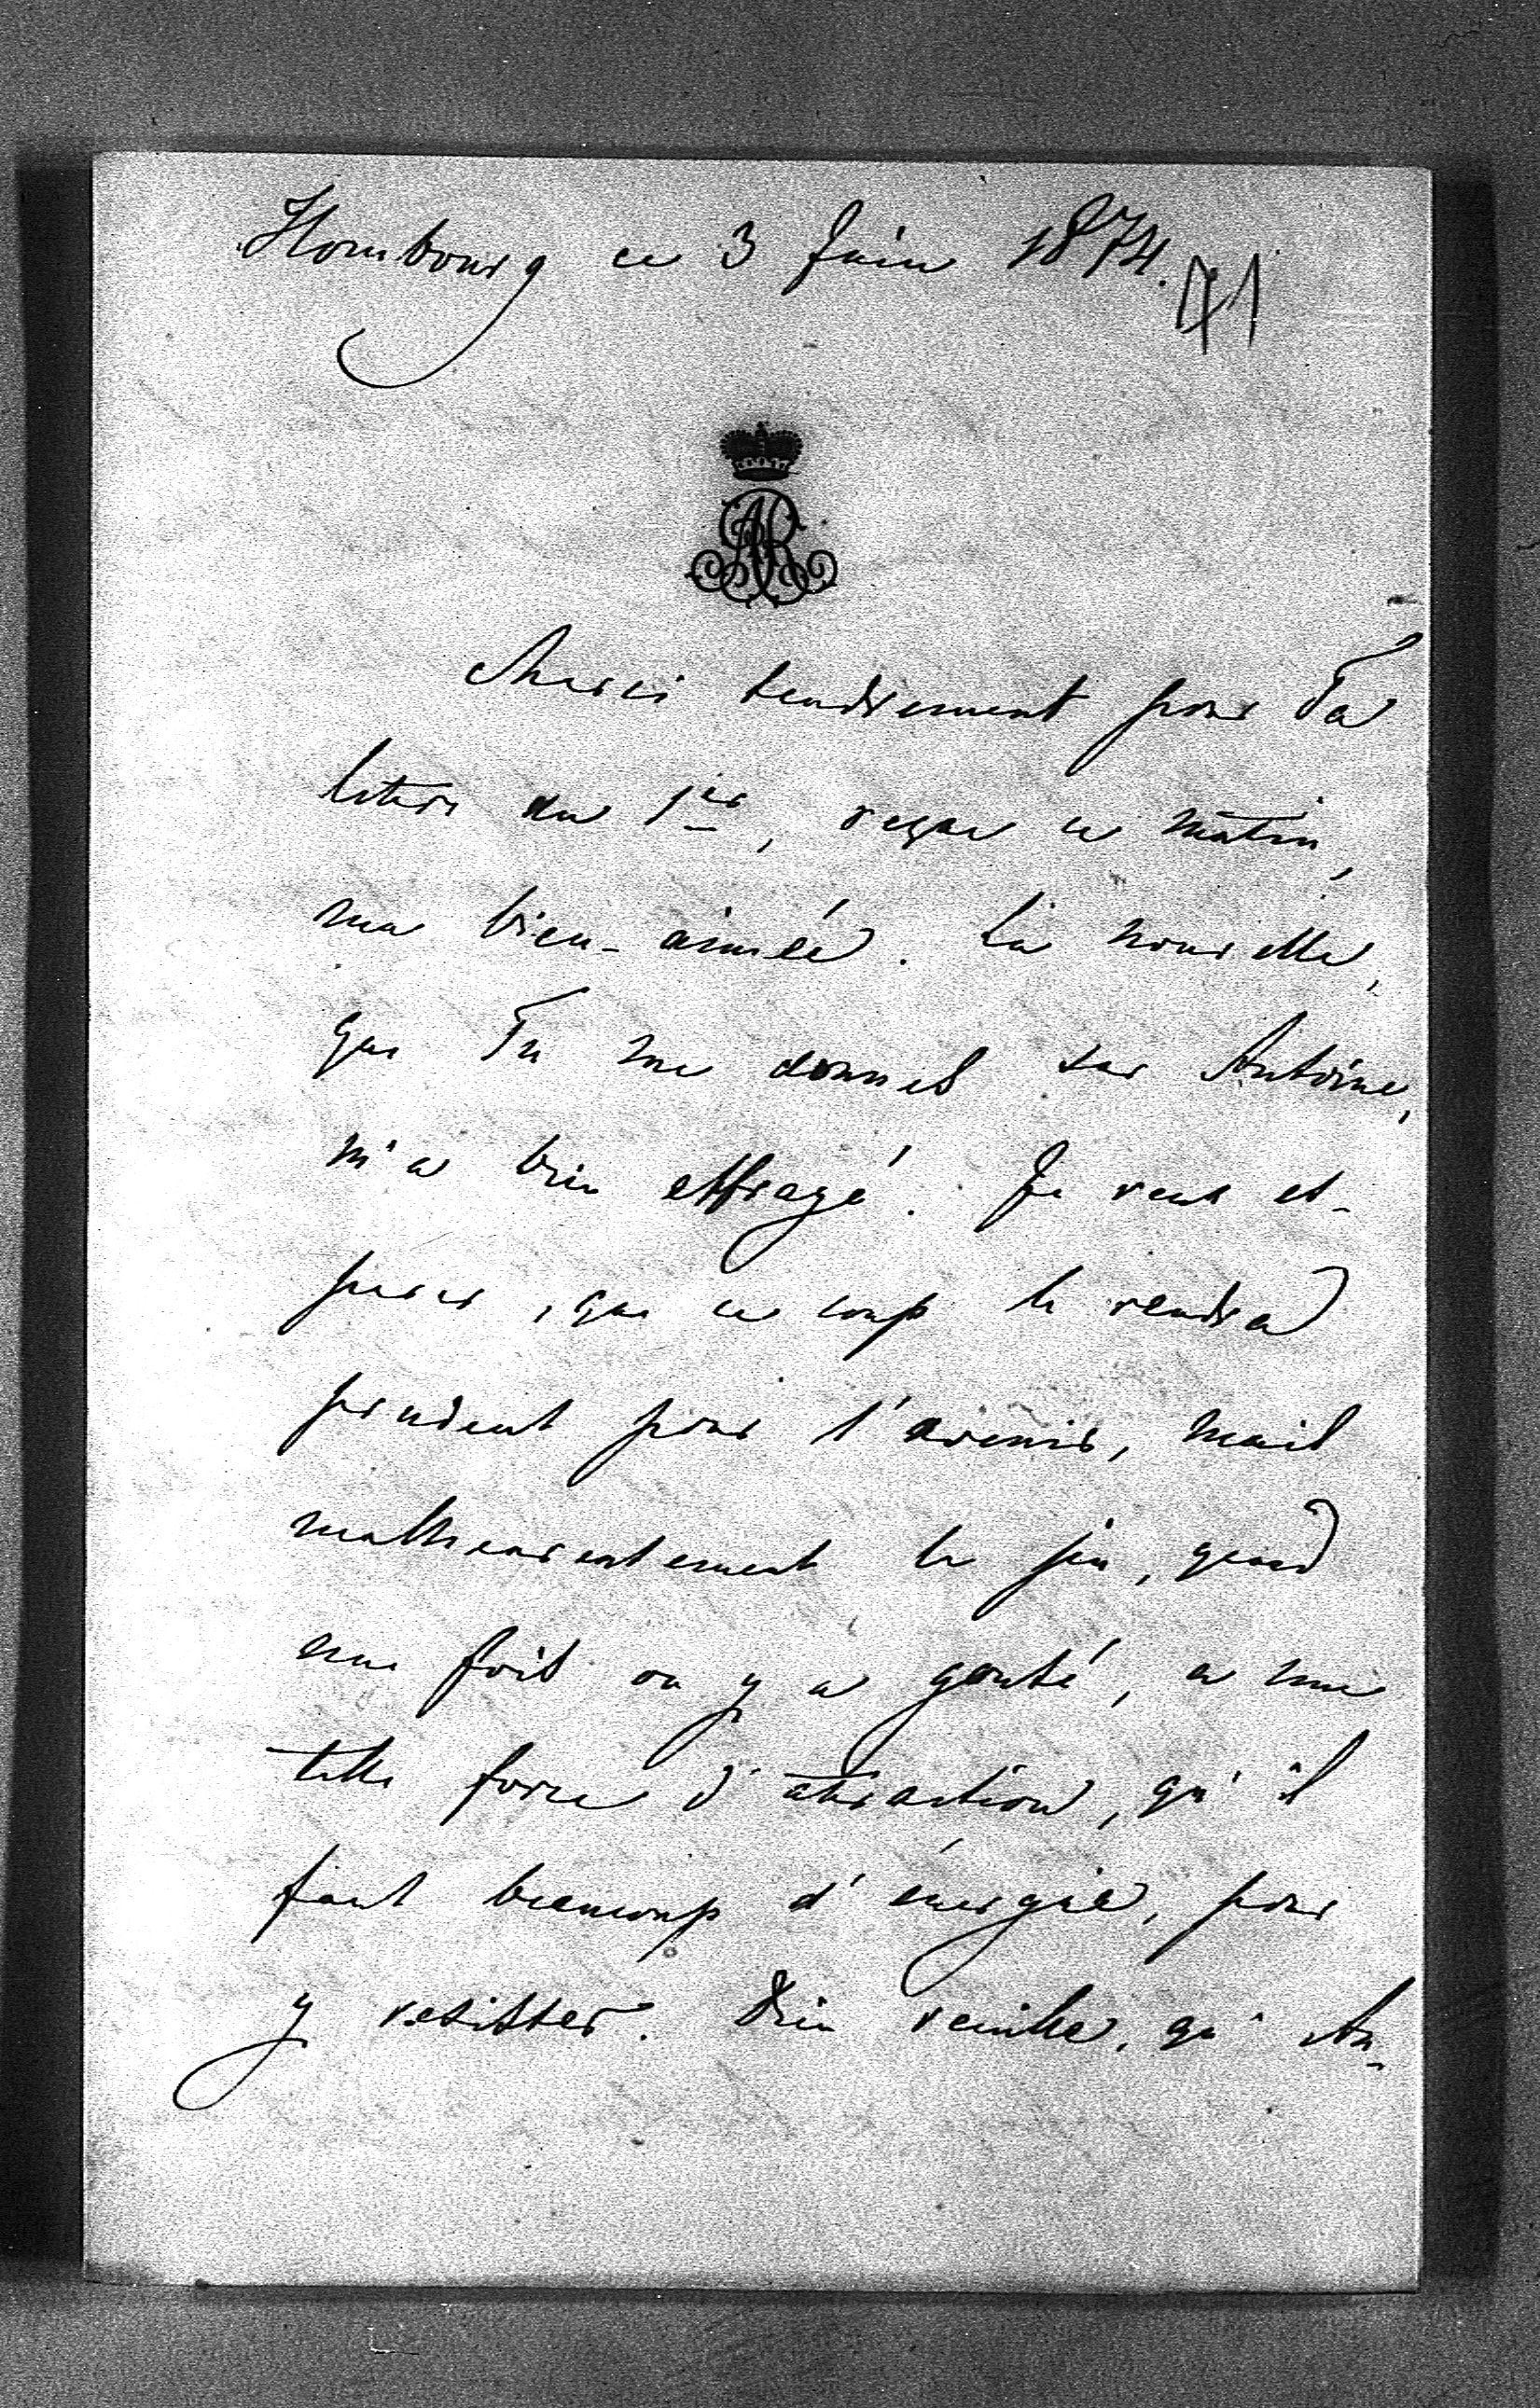 Hombourg ce 3 Juin 1874.
41
AR
Merci tendrement pour Ta
lettre du 1er, reçue ce matin,
ma bien-aimée. La nouvelle,
que Tu me donnes sur Antoine,
m'a bien effrayé. Je veux es-
perer, que ce coup le rendra
prudent pour l'avenir, mais
malheureusement le jeu, quand
une fois on y a gouté, a une
telle force d'attraction, qu'il
faut beaucoup d'énergie, pour
y resister. Dieu veuille, qu'An-